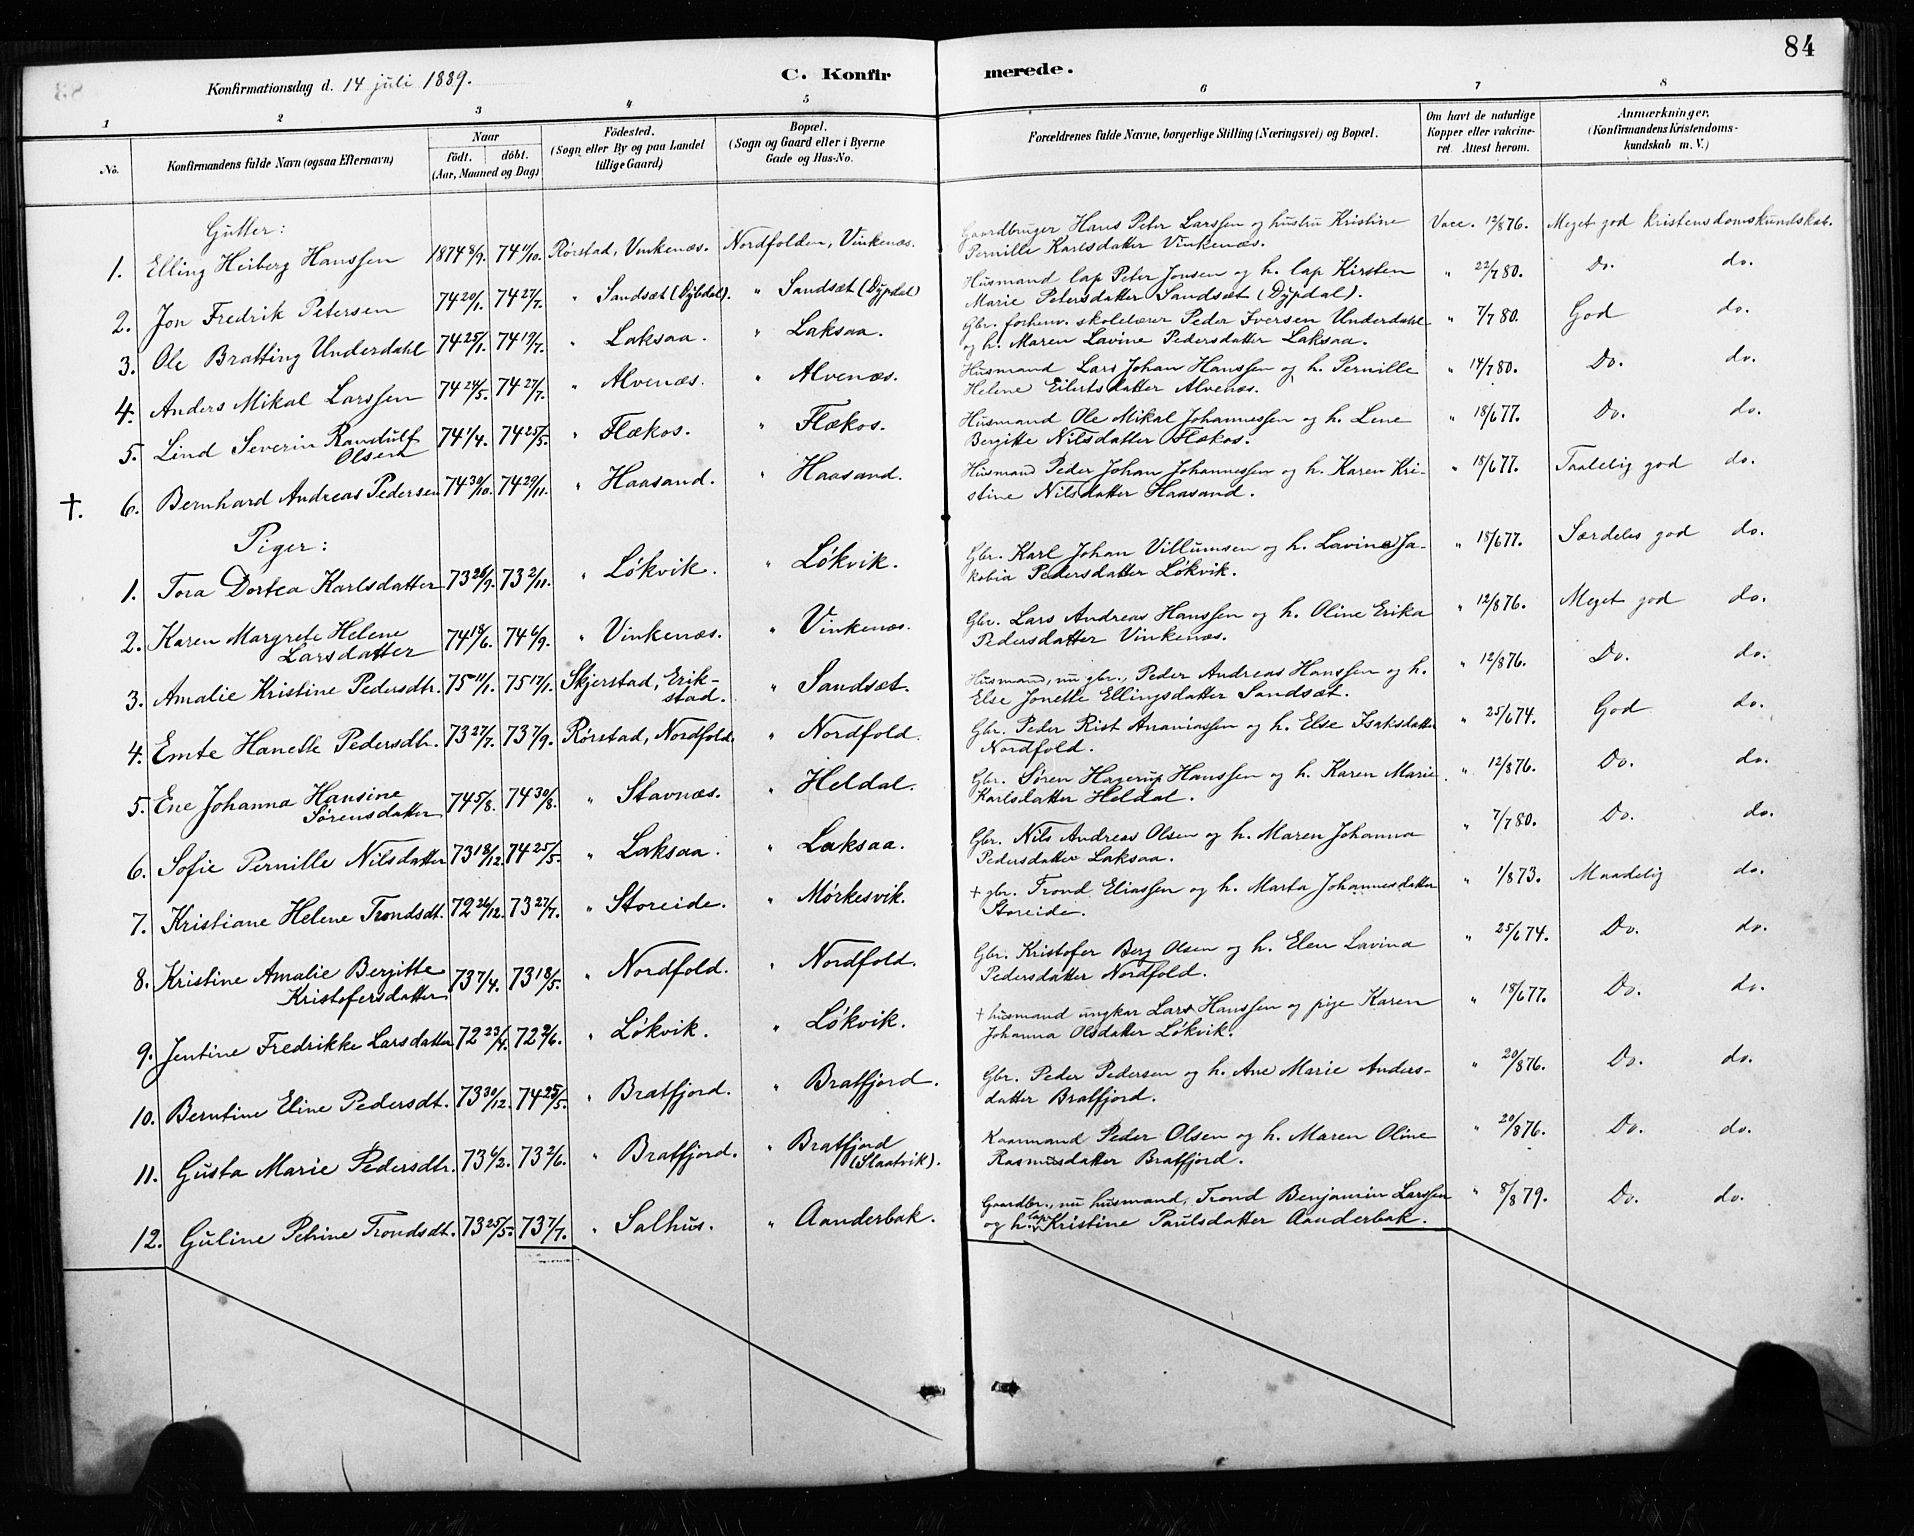 84
Konfirmationsdag d. 14 juli 1889.
C. Konfirmerede.
1 2 3 4 5 6 7 8
No. Konfirmandens fulde Navn (ogsaa Efternavn) Naar födt. döbt. (Aar, Maaned og Dag) Födested. (Sogn eller By og paa Landet tillige Gaard) Bopæl. (Sogn og Gaard eller i Byerne Gade og Hus-No. Forældrenes fulde Navne, borgerlige Stilling (Næringsvei) og Bopæl. Om havt de naturlige Kopper eller vakcineret. Attest herom. Anmærkninger. (Konfirmandens Kristendomskundskab m. V.)
Gutter:
1. Elling Heiberg Hanssen 1874 8/9. 74 11/10. Rørstad, Vinkenæs. Nordfolden, Vinkenæs. Gaardbruger Hans Peter Larssen og hustru Kristine Pernille Karlsdatter Vinkenæs. Vacc. 12/8 76. Meget god kristendomskundskab.
2. Jon Fredrik Petersen 74 20/1. 74 27/7. " Sandsæt (Dybdal). " Sandsæt (Dypdal) Husmand lap Peter Jonsen og h. lap Kirsten Marie Petersdatter Sandsæt (Dypdal). " 22/7 80. Do. do.
3. Ole Bratting Underdahl 74 25/1. 74 19/7. " Laksaa. " Laksaa. Gbr. forhenv. skolelærer Peder Iversen Underdahl og h. Maren Lavine Pedersdatter Laksaa. " 7/7 80. God do.
4. Anders Mikal Larssen 74 24/5. 74 27/7. " Alvenæs. " Alvenæs. Husmand Lars Johan Hanssen og h. Pernille Helene Eilertsdatter Alvenæs. " 14/7 80. Do. do.
5. Lind Severin Randulf Olsen 74 1/4. 74 25/5. " Flækos. " Flækos. Husmand Ole Mikal Johannessen og h. Lene Bergitte Nilsdatter Flækos. " 18/6 77. Do. do.
†. 6. Bernhard Andreas Pedersen 74 30/10. 74 29/11. " Haasand. " Haasand. Husmand Peder Johan Johannessen og h. Karen Kristine Nilsdatter Haasand. " 18/6 77. Taalelig god do.
Piger:
1. Tora Dortea Karlsdatter 73 26/9. 73 2/11. " Løkvik. " Løkvik. Gbr. Karl Johan Villumsen og h. Lavine Jakobia Pedersdatter Løkvik. " 18/6 77. Særdeles god do.
2. Karen Margrete Helene Larsdatter 74 18/6. 74 6/9. " Vinkenæs. " Vinkenæs. Gbr. Lars Andreas Hanssen og h. Oline Erika Pedersdatter Vinkenæs. " 12/8 76. Meget god do.
3. Amalie Kristine Pedersdtr. 75 11/1. 75 17/1. Skjerstad, Erikstad. " Sandsæt. Husmand, nu gbr., Peder Andreas Hanssen og h. Else Jonette Ellingsdatter Sandsæt. " 12/8 76. Do. do.
4. Emte Hanette Pedersdtr. 73 27/7. 73 7/9. Rørstad, Nordfold. " Nordfold. Gbr. Peder Rist Ananiassen og h. Else Isaksdatter Nordfold. " 25/6 74. God do.
5. Ene Johanna Hansine Sørensdatter 74 5/8. 74 30/8. " Stavnæs. " Heldal. Gbr. Søren Hagerup Hanssen og h. Karen Marie Karlsdatter Heldal. " 12/8 76. Do. do.
6. Sofie Pernille Nilsdatter 73 18/12. 74 25/5. " Laksaa. " Laksaa. Gbr. Nils Andreas Olsen og h. Maren Johanna Pedersdatter Laksaa. " 7/7 80. Do. do.
7. Kristiane Helene Trondsdt. 72 26/12. 73 27/7. " Storeide. " Mørkesvik. + gbr. Trond Eliassen og h. Marta Johannesdatter Storeide. " 1/8 73. Maadelig do.
8. Kristine Amalie Bergitte Kristofersdatter 73 7/4. 73 18/5. " Nordfold. " Nordfold. Gbr. Kristofer Berg Olsen og h. Elen Lavina Pedersdatter Nordfold. " 25/6 74. Do. do.
9. Jentine Fredrikke Larsdatter 72 23/4. 72 2/6. " Løkvik. " Løkvik. + husmand ungkar Lars Hanssen og pige Karen Johanna Olsdatter Løkvik. " 18/6 77. Do. do.
10. Berntine Eline Pedersdt. 73 30/12. 74 25/5. " Bratfjord. " Bratfjord. Gbr. Peder Pedersen og h. Ane Marie Andersdatter Bratfjord. " 20/8 76. Do. do.
11. Gusta Marie Pedersdtr. 73 6/2. 73 2/6. " Bratfjord. " Bratfjord (Slaatvik). Kaarmand Peder Olsen og h. Maren Oline Rasmusdatter Bratfjord. " 20/8 76. Do. do.
12. Guline Petrine Trondsdt. 73 25/5. 73 7/7. " Salhus. " Aanderbak. Gaardbr., nu husmand, Trond Benjamin Larssen og h. lap. Kristine Paulsdatter Aanderbak. " 8/8 79. Do. do.